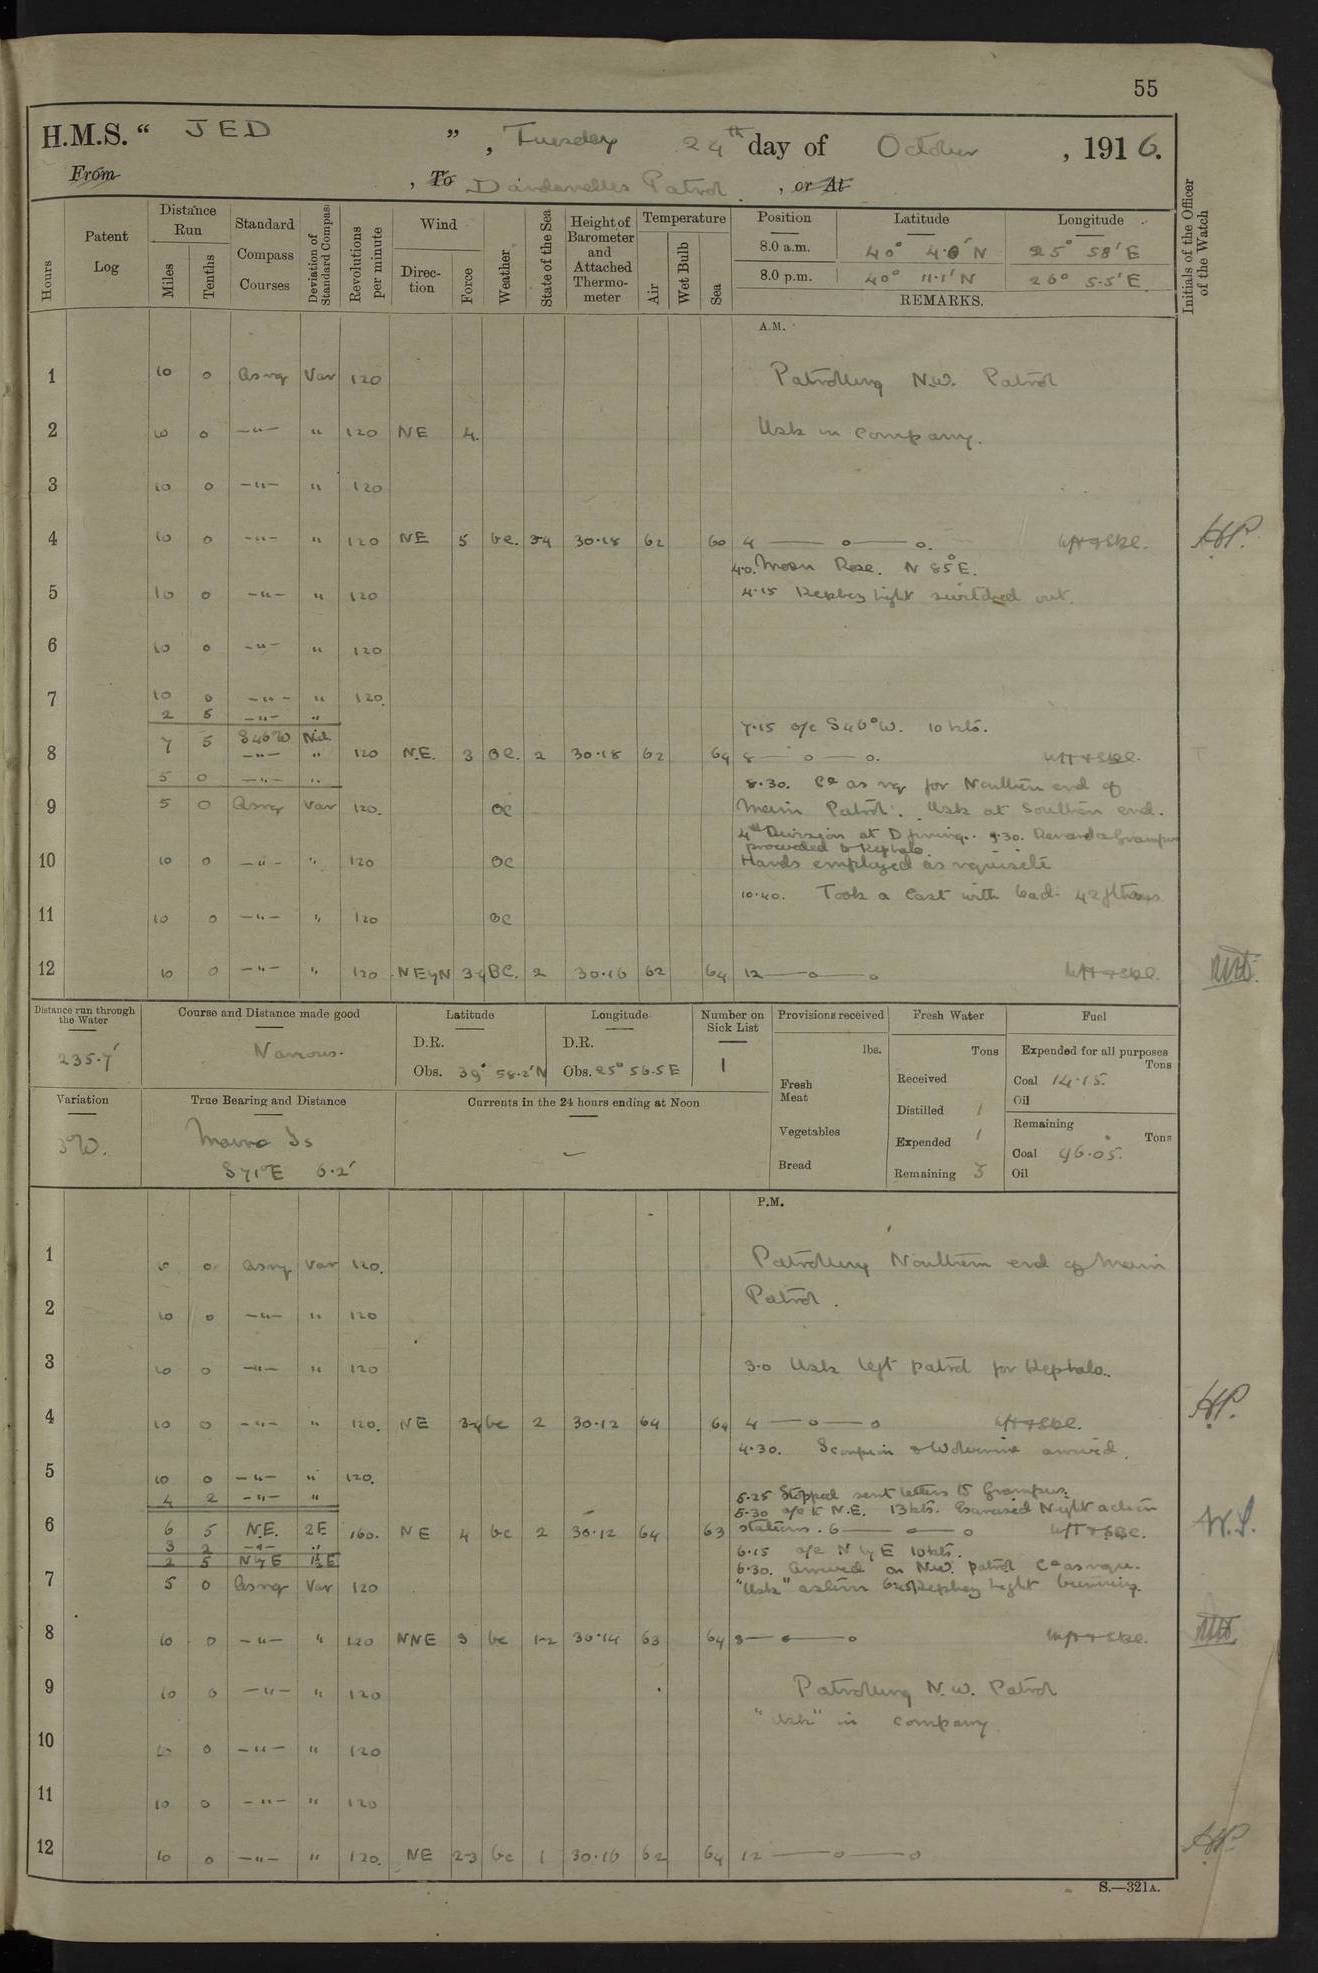 55
H.M.S. “ JED ”, Tuesday 24th day of October, 1916.
From , To Dardanelles Patrol , or At
Hours
Patent Log
Distance Run
Miles
Tenths
Standard Compass Courses
Deviation of Standard Compass
Revolutions per minute
Wind
Direction
Force
Weather
State of the Sea
Height of Barometer and Attached Thermometer
Temperature
Air
Wet Bulb
Sea
Position Latitude Longitude
8.0 a.m. 40° 4.0' N 25° 58' E
8.0 p.m. 40° 11.1' N 26° 5.5' E
REMARKS.
Initials of the Officer of the Watch
A.M.
1 10 0 As req Var 120 Patrolling N.W. Patrol
2 10 0 -"- " 120 NE 4. Usk in company.
3 10 0 -"- " 120
4 10 0 -"- " 120 NE 5 bc. 34 30.18 62 60 4 — o — o.
4.0. Moon Rose. N 85° E.
5 10 0 -"- " 120 4.15 Kephez light switched out.
6 10 0 -"- " 120
7 10 0 -"- " 120.
2 5 -"- "
7.15 a/c S46°W. 10 kts.
7 5 S46W Nil
8 -"- " 120 N.E. 3 BC. 2 30.18 62 64 8 — o — o.
5 0 -"- "
8.30. Co as req for Northern end of
9 5 0 As req Var 120. BC Main Patrol. Usk at Southern end.
4th Division at D firing. 9.30. Renard & Grampus
proceeded to Kephalo.
10 10 0 -"- " 120 BC Hands employed as requisite
10.40. Took a Cast with lead. 42 fthms
11 10 0 -"- " 120 BC
12 10 0 -"- " 120 NEyN 3-4 BC. 2 30.16 62 64 12 — o — o
Distance run through the Water
235.7'
Course and Distance made good
Various.
Latitude
D.R.
Obs. 39° 58.2' N
Longitude
D.R.
Obs. 25° 56.5 E
Number on Sick List
1
Provisions received
lbs.
Fresh Meat
Vegetables
Bread
Fresh Water
Tons
Received
Distilled 1
Expended 1
Remaining 5
Fuel
Expended for all purposes
Tons
Coal 14.15.
Oil
Remaining
Tons
Coal 96.05.
Oil
Variation
3°W.
True Bearing and Distance
Mavro Is
S71°E 6.2'
Currents in the 24 hours ending at Noon
P.M.
1 0 As req Var 120. Patrolling Northern end of Main
2 10 0 -"- " 120 Patrol.
3 10 0 -"- " 120 3.0 Usk left patrol for Kephalo.
4 10 0 -"- " 120. NE 3-4 bc 2 30.12 64 64 4 — o — o
4.30. Scorpion & Wolverine arrived.
5 10 0 -"- " 120.
4 2 -"- "
5.25 Stopped sent letters to Grampus.
5.30 a/c to N.E. 13 kts. Exercised Night action
6 6 5 N.E. 2E 160. NE 4 bc 2 30.12 64 63 stations. 6 — o — o
3 2 -"- "
6.15 a/c N by E 10 kts.
2 5 NyE 1½E
6.30. Arrived on N.W. patrol Co as req.
7 5 0 As req Var 120 "Usk" astern 6.45 Kephez light burning.
8 10 0 -"- " 120 NNE 3 bc 1-2 30.14 63 64 8 — o — o
9 10 0 -"- " 120 Patrolling N.W. Patrol
"Usk" in company
10 10 0 -"- " 120
11 10 0 -"- " 120
12 10 0 -"- " 120. NE 2-3 bc 1 30.16 62 64 12 — o — o
S.—321A.